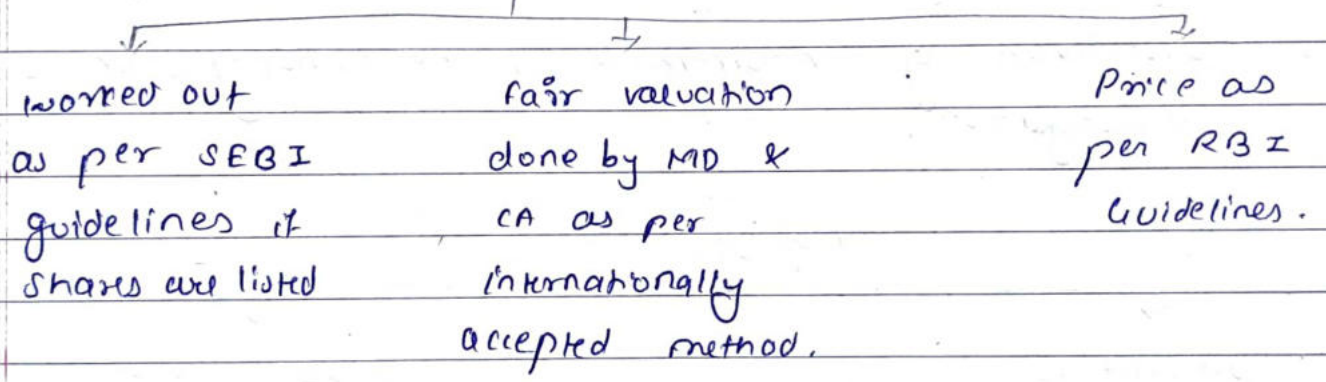 worked out
as per SEBI
guidelines if
shares are listed
fair valuation
done by MD &
CA as per
internationally
accepted method.
Price as
per RBI
Guidelines.